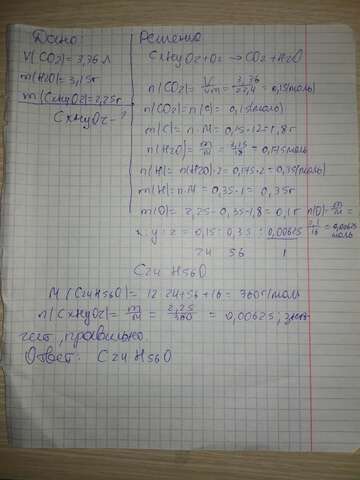 Дано:
V(CO2) = 3,36 л
m(H2O) = 3,15 г
m(CxHyOz) = 2,25 г
CxHyOz - ?
Решение
CxHyOz + O2 → CO2 + H2O
n(CO2) = V/Vm = 3,36/22,4 = 0,15(моль)
n(CO2) = n(C) = 0,15(моль)
m(C) = n·M = 0,15·12 = 1,8г
n(H2O) = m/M = 3,15/18 = 0,175моль
n(H) = n(H2O)·2 = 0,175·2 = 0,35(моль)
m(H) = n·M = 0,35·1 = 0,35г
m(O) = 2,25-0,35-1,8 = 0,1г n(O) = m/M =
x:y:z = 0,15:0,35:0,00625 0,1/16 = 0,00625 моль
24 56 1
C24H56O
M(C24H56O) = 12·24+56+16 = 360г/моль
n(CxHyOz) = m/M = 2,25/360 = 0,00625, знач
чит, правильно.
Ответ: C24H56O